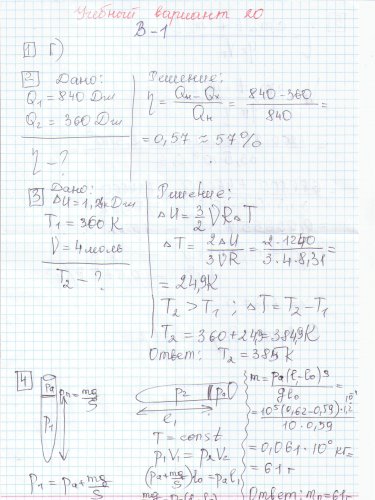 Учебный вариант 20
В-1
1 Г)
2 Дано:
Q₁ = 840 Дж
Q₂ = 360 Дж
η - ?
Решение:
η = (Qн - Qх)/Qн = (840 - 360)/840 =
= 0,57 ≈ 57%
3 Дано:
T₁ = 360 К
ν = 4 моль
T₂ - ?
Решение:
ΔU = 3/2 νRΔT
ΔT = 2ΔU/3νR = 2·1240/3·4·8,31 =
= 24,9К
T₂ > T₁ ; ΔT = T₂ - T₁
T₂ = 360 + 24,9 = 384,9К
Ответ: T₂ = 385 К
4
pₐ
pп = mg/S
p₁
p₁ = pₐ + mg/S
p₂
pₐ
l₁
T = const
p₁V₁ = p₂V₂
(pₐ + mg/S) l₀ = pₐl₁
m = pₐ(l₁ - l₀)S/gl₀ =
= 10⁵(0,62 - 0,59)·1,2·10⁻⁴/10·0,59
= 61 г
Ответ: mп = 61г